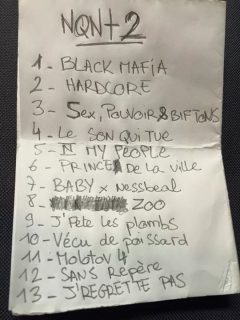 NQNT 2
1 - BLACK MAFiA
2 - HARDCORE
3 - Sex, Pouvoir & BiFTONS
4 - Le SON QUi TUe
5 - MY PEOPLE
6 - PRINCE De la ville
7 - BABY x Nessbeal
8 - ZOO
9 - J'Pete les plombs
10 - Vécu de poissard
11 - Molotov 4
12 - SANS Repère
13 - J'REGRETTE PAS